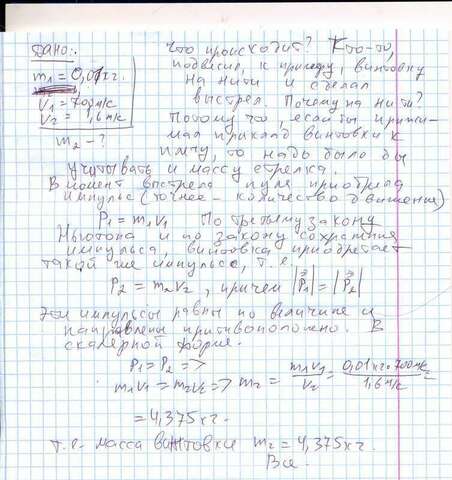 Дано:
m1 = 0,01кг.
V1 = 700м/с
V2 = 1,6м/с
m2 - ?
Что происходит? Кто-то,
подвесил, к примеру, винтовку
на нити и сделал
выстрел. Почему на нити?
Потому что, если ты прижи-
мал приклад винтовки к
плечу, то надо было бы
учитывать и массу стрелка.
В момент выстрела пуля приобрела
импульс (точнее - количество движения)
P1 = m1V1 По третьему закону
Ньютона и по закону сохранения
импульса, винтовка приобретает
такой же импульс, т.е.
P2 = m2V2, причем |P⃗1| = |P⃗2|
Эти импульсы равны по величине и
направлены противоположно. В
скалярной форме.
P1 = P2 =>
m1V1 = m2V2 => m2 = m1V1/V2 = 0,01кг*700м/с/1,6м/с =
= 4,375кг.
т.е. масса винтовки m2 = 4,375кг.
Все.